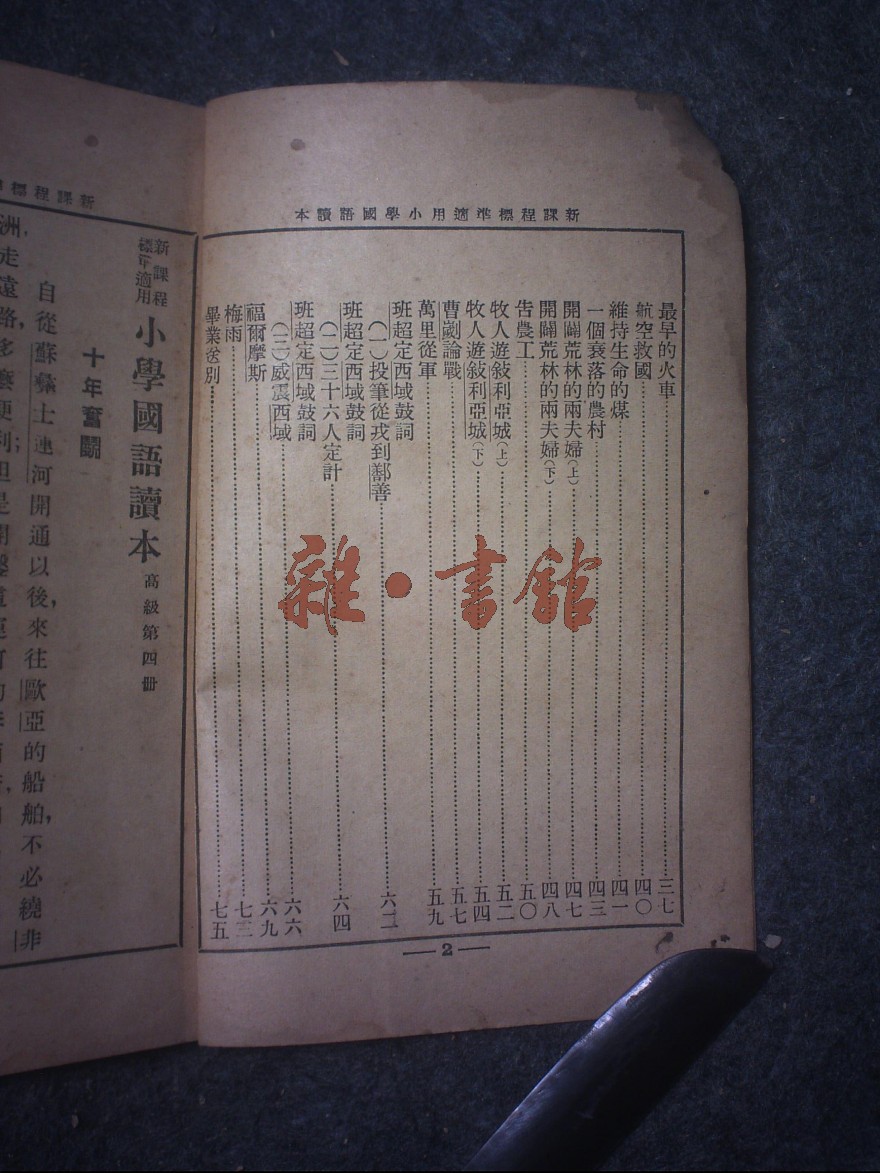 新課程標準適用小學國語讀本
最早的火車……三七
航空救國……四〇
維持生命的煤……四一
一個衰落的農村……四三
開闢荒林的兩夫婦(上)……四七
開闢荒林的兩夫婦(下)……四八
告農工……五〇
牧人遊敍利亞城(上)……五二
牧人遊敍利亞城(下)……五四
曹劌論戰……五七
萬里從軍……五九
班超定西域鼓詞
(一)投筆從戎到鄯善……六二
班超定西域鼓詞
(二)三十六人定計……六四
班超定西域鼓詞
(三)威震西域……六六
福爾摩斯……六九
梅雨……七三
畢業送別……七五
2
雜·書館
新課程標
新課程標準適用 小學國語讀本 高級第四冊
十年奮鬭
自從蘇彝士運河開通以後,來往歐亞的船舶,不必繞非
洲,走遠路,多麼便利;但是開